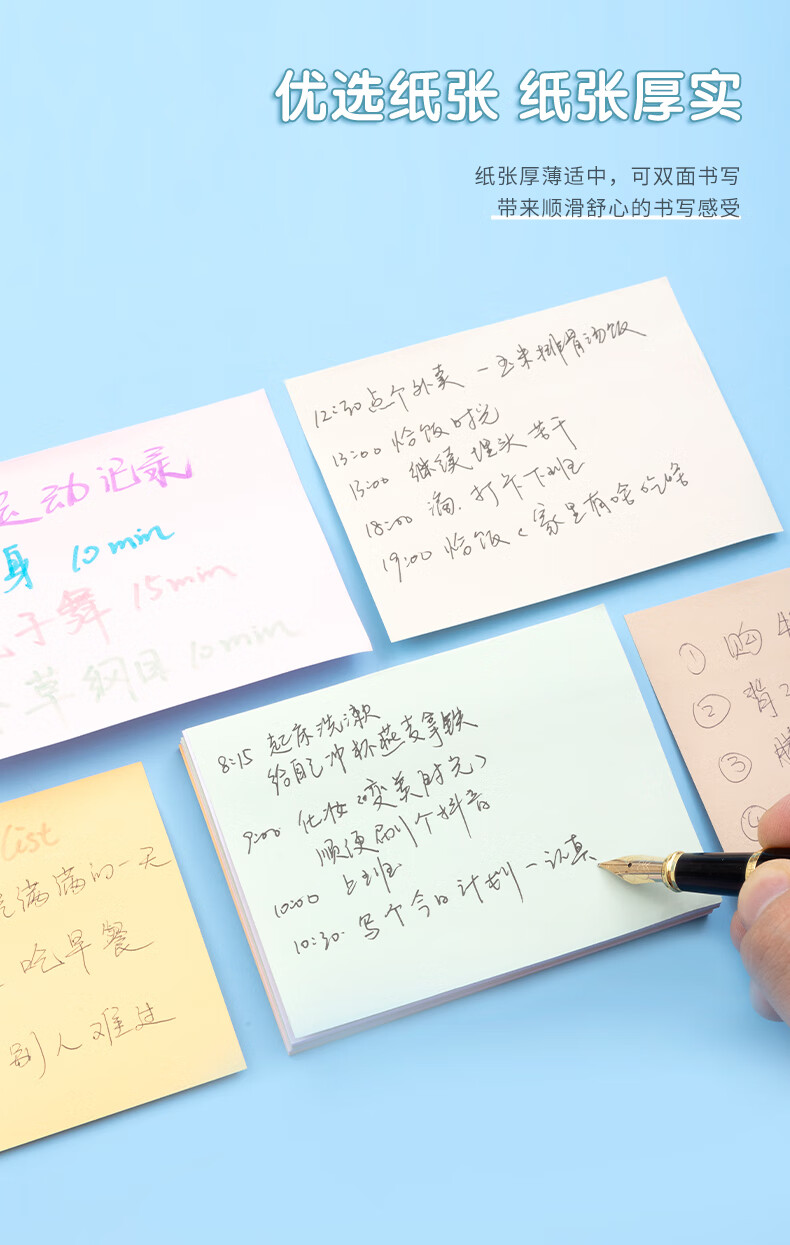 优选纸张 纸张厚实
纸张厚薄适中，可双面书写
带来顺滑舒心的书写感受
12:30 点个外卖 — 玉米排骨汤饭
13:00 恰饭时光
15:00 继续埋头苦干
18:00 滴.打卡下班
19:00 恰饭<家里有啥吃啥
运动记录
身 10min
子舞 15min
草纲目 10min
8:15 起床洗漱
给自己冲杯燕麦拿铁
9:00 化妆<变美时光>
顺便刷个抖音
10:00 上班
10:30 写个今日计划—认真
① 购
② 背
③
④
list
满满的一天
吃早餐
别人难过